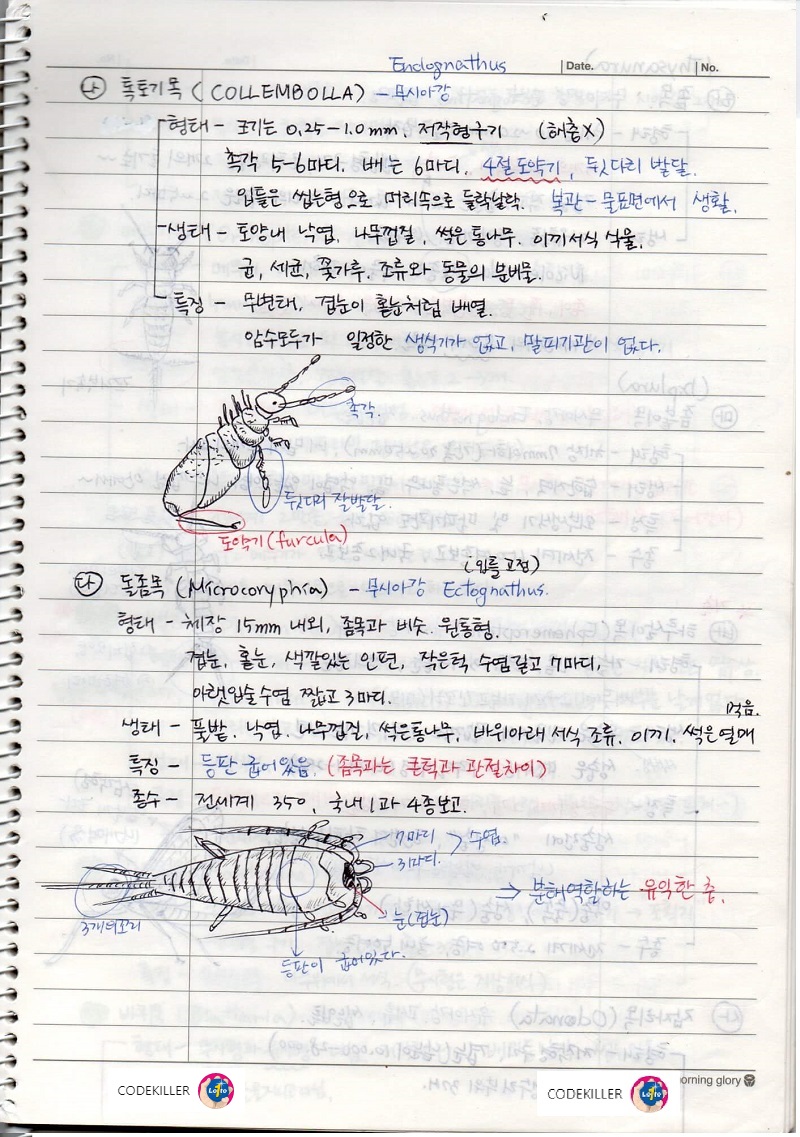 Endognathus
Date.
No.
나 톡토기목 (COLLEMBOLLA) - 무시아강
형태 - 크기는 0.25-1.0mm, 저작형구기 (해충X)
촉각 5-6마디. 배는 6마디. 4절 도약기, 뒷다리 발달.
입틀은 씹는형으로 머리속으로 들락날락. 복관 - 물표면에서 생활.
생태 - 토양내 낙엽, 나무껍질, 썩은통나무. 이끼서식 식물.
균, 세균, 꽃가루, 조류와 동물의 분비물.
특징 - 무변태, 겹눈이 홑눈처럼 배열.
암수모두가 일정한 생식기가 없고, 말피기관이 없다.
촉각.
뒷다리 잘발달.
도약기 (furcula)
(입틀 고정)
다 돌좀목 (Microcoryphia) - 무시아강 Ectognathus.
형태 - 체장 15mm 내외, 좀목과 비슷. 원통형.
겹눈, 홑눈, 색깔있는 인편, 작은턱 수염길고 7마디,
아랫입술수염 짧고 3마디.
먹음.
생태 - 풀밭. 낙엽. 나무껍질, 썩은통나무, 바위아래 서식 조류. 이끼. 썩은열매
특징 - 등판 굽어있음. (좀목과는 큰턱과 관절차이)
종수 - 전세계 350, 국내 1과 4종보고.
7마디
수염.
3마디.
→ 분해역할하는 유익한 충.
눈(겹눈)
3개의꼬리
등판이 굽어있다.
orning glory
CODEKILLER
Lotto
CODEKILLER
Lotto